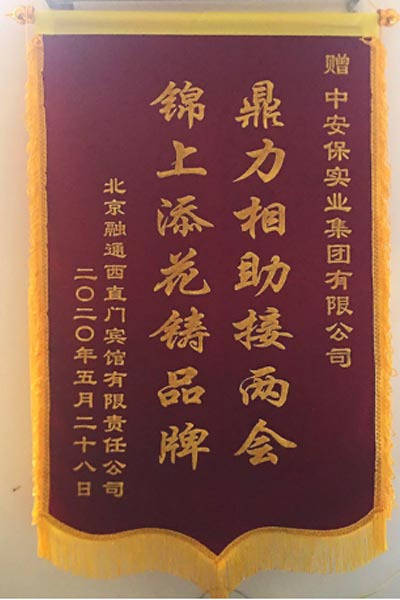 赠 中安保实业集团有限公司
鼎力相助接两会
锦上添花铸品牌
北京融通西直门宾馆有限责任公司
二〇二〇年五月二十八日